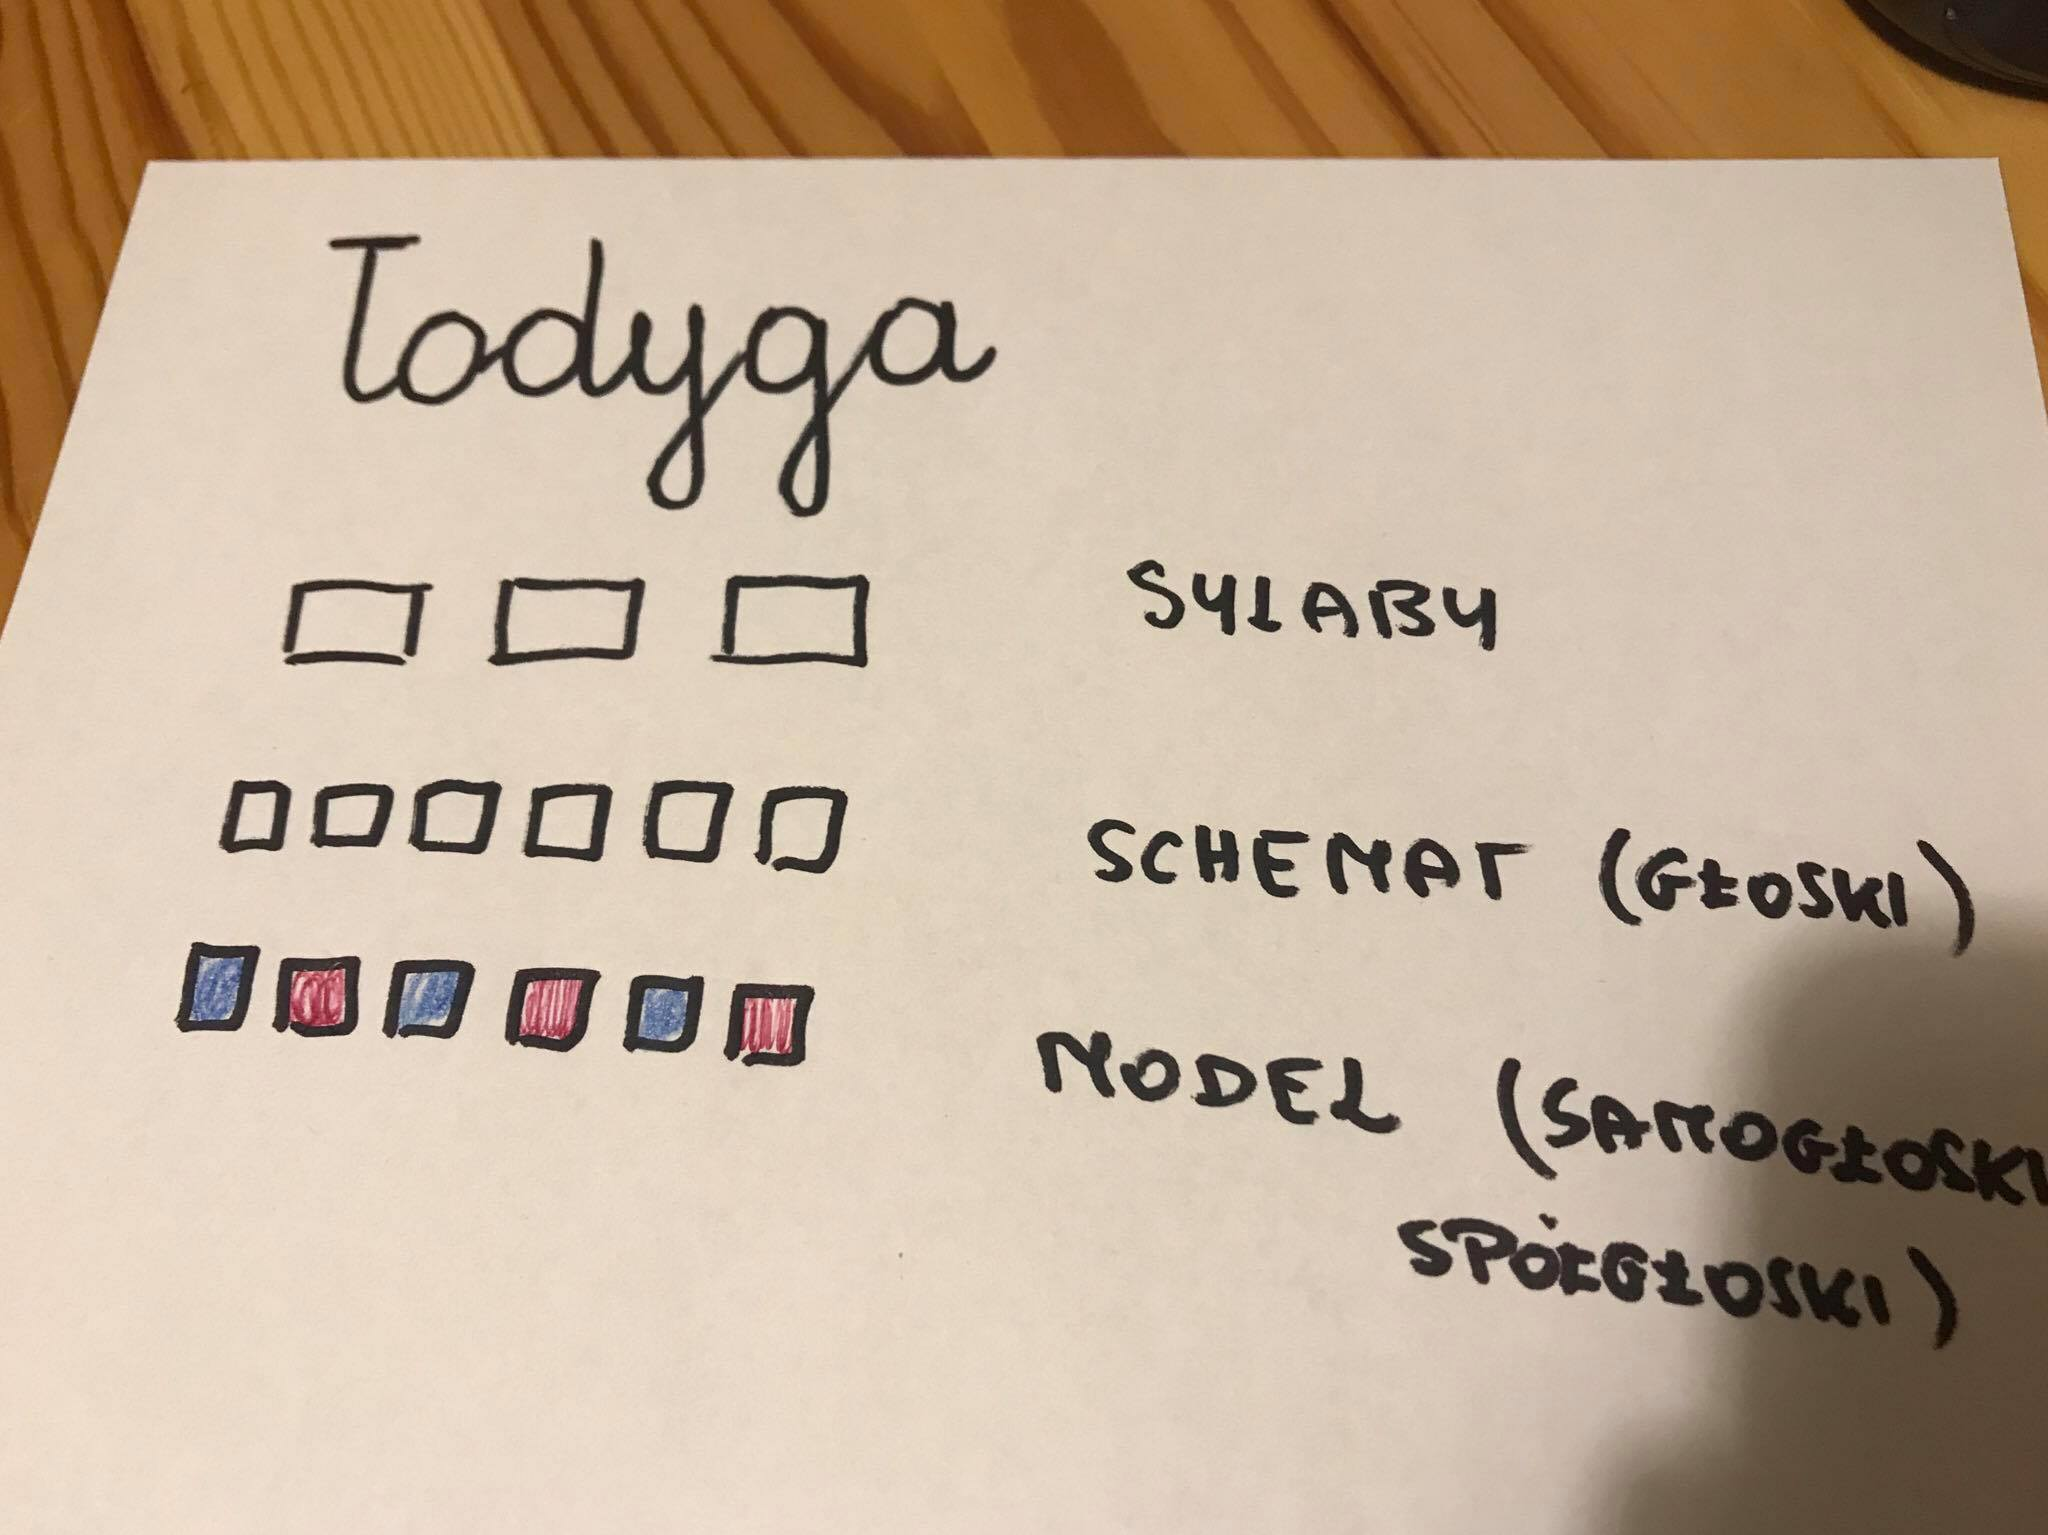 łodyga
SYLABY
SCHEMAT (GŁOSKI)
MODEL (SAMOGŁOSKI
SPÓŁGŁOSKI)